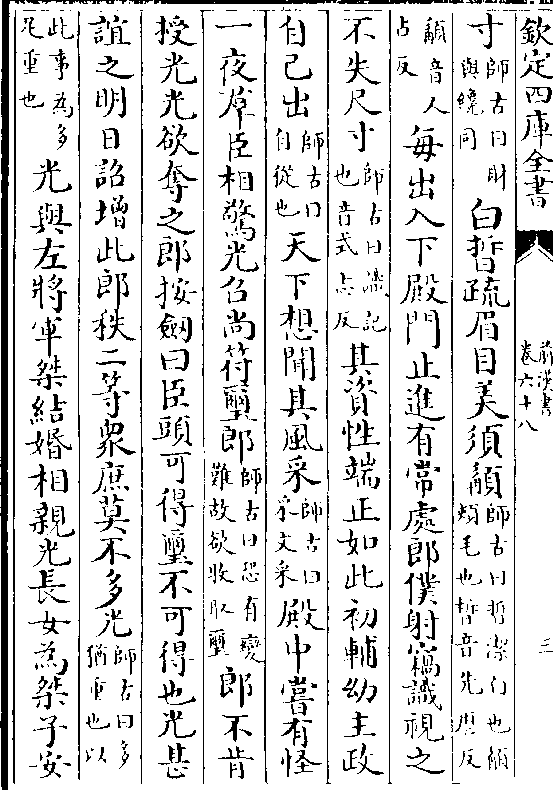 欽定四庫全書
前漢書
卷六十八
三
寸師古曰財與纔同白晳疏眉目美須顏師古曰晳潔白也顏頰毛也晳音先歷反
顏音人占反每出入下殿門止進有常處郎僕射竊識視之
不失尺寸師古曰識記也音式志反其資性端正如此初輔幼主政
自己出師古曰自從也天下想聞其風采師古曰采文采殿中嘗有怪
一夜羣臣相驚光召尚符璽郎師古曰恐有變難故欲收取璽郎不肯
授光光欲奪之郎按劒曰臣頭可得璽不可得也光甚
誼之明日詔增此郎秩二等衆庶莫不多光師古曰多猶重也以
此事為多足重也光與左將軍桀結婚相親光長女為桀子安